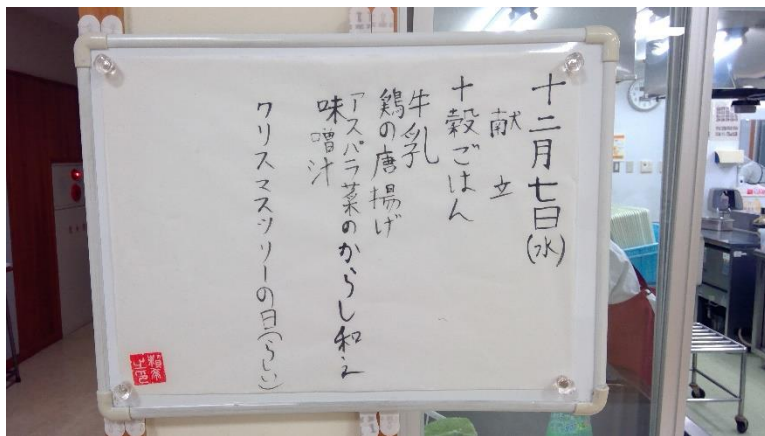 十二月七日(水)
献立
十穀ごはん
牛乳
鶏の唐揚げ
アスパラ菜のからし和え
味噌汁
クリスマスツリーの日(らしい)